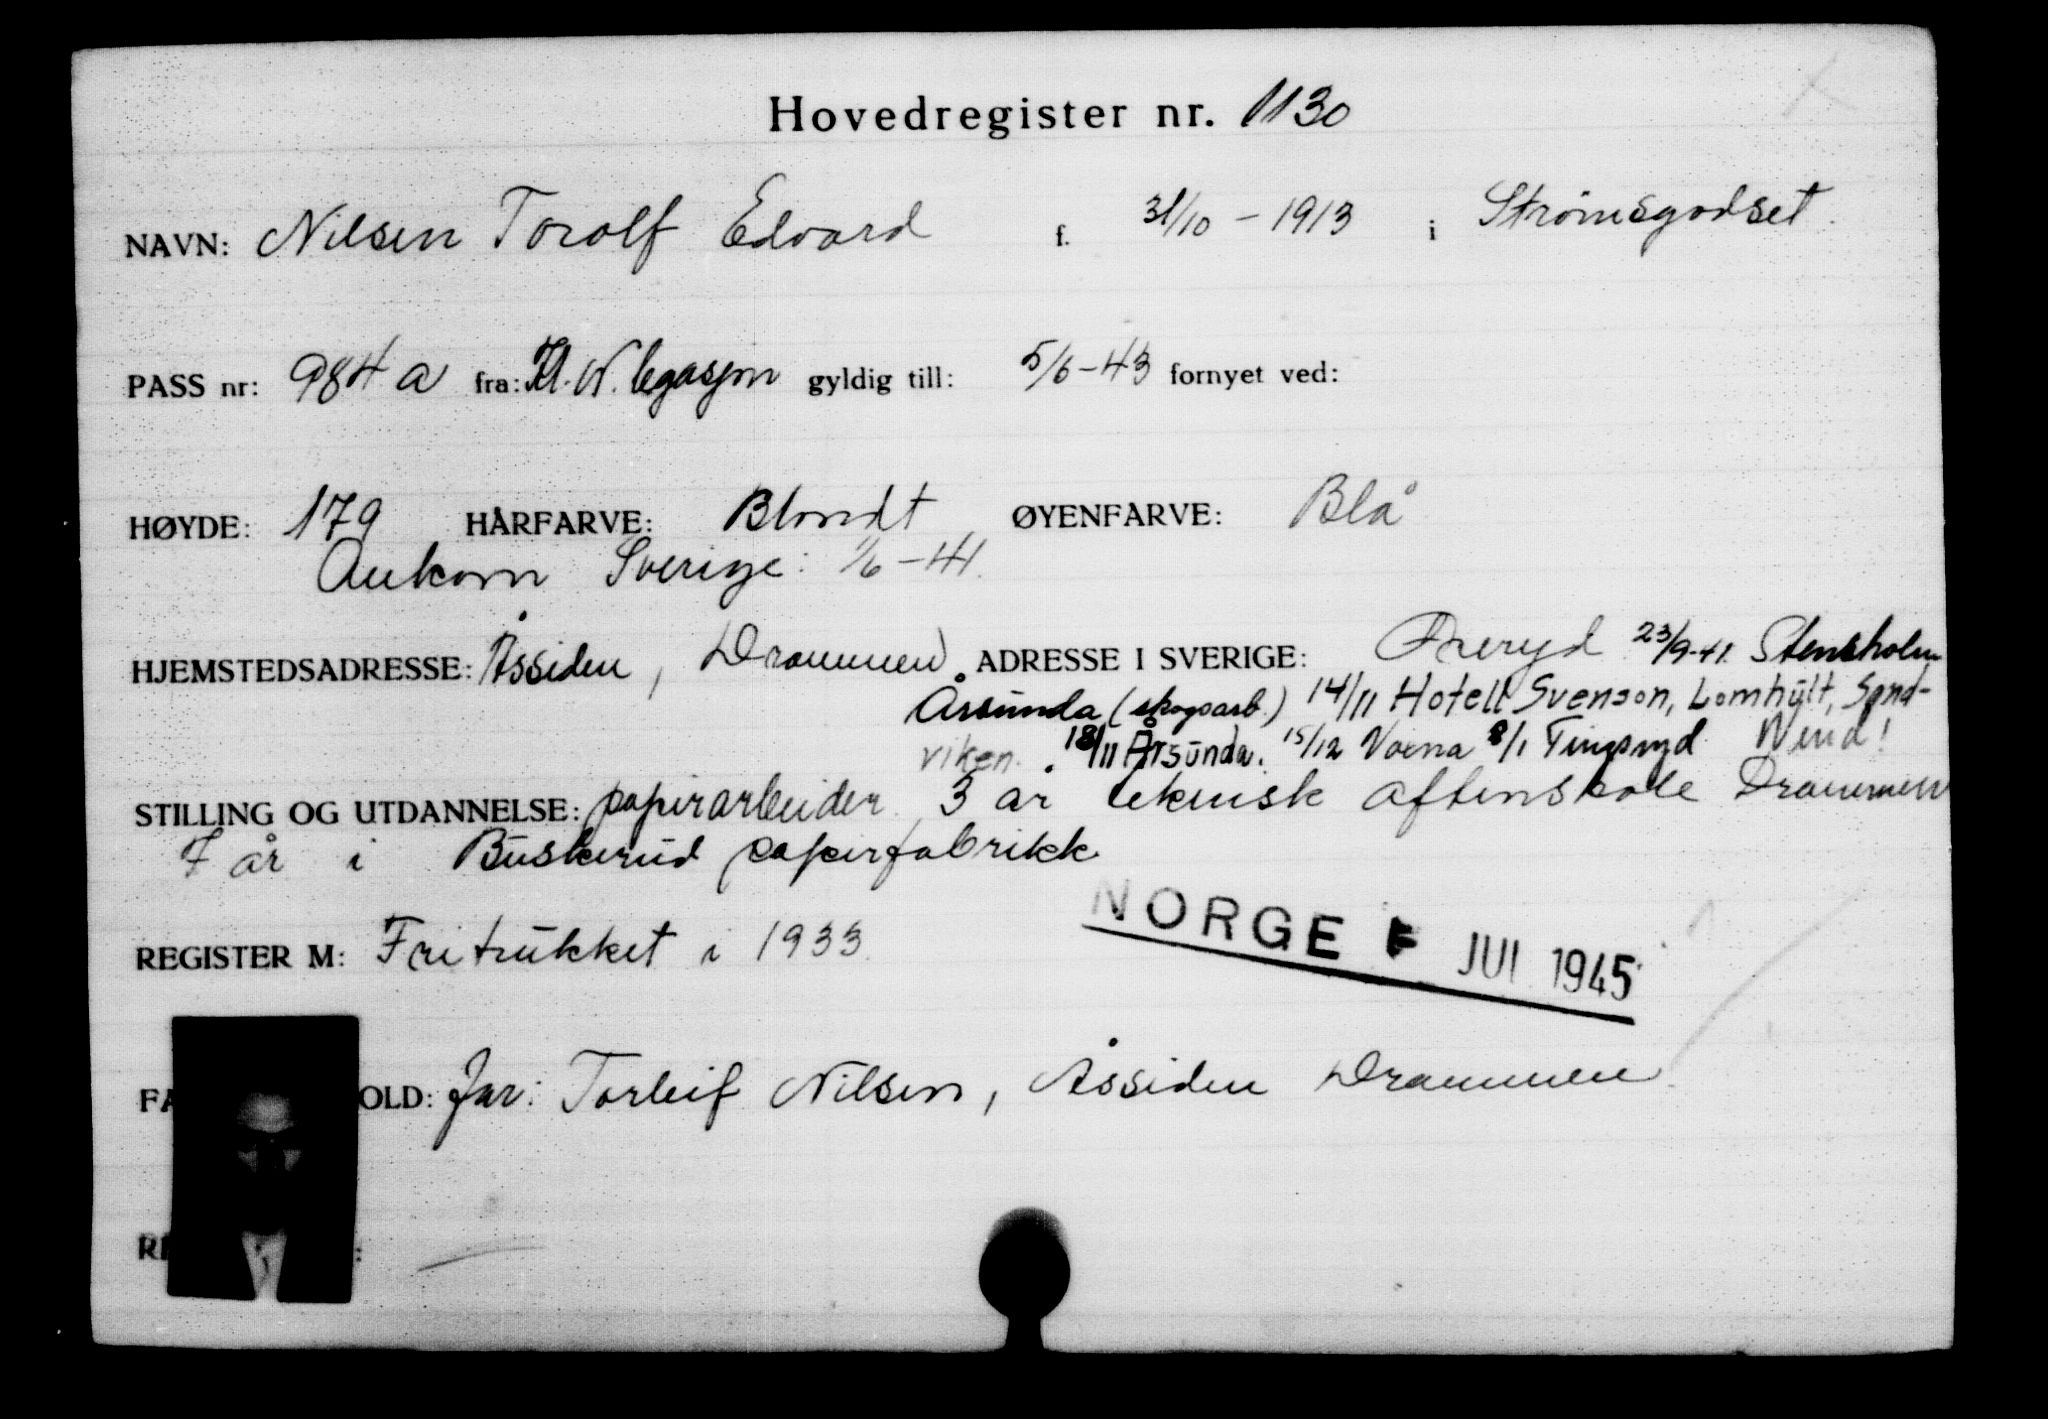 Hovedregister nr. 1130
NAVN: Nilsen Torolf Edvard f. 31/10 - 1913 i Strømsgodset.
PASS nr: 984 a fra: Kl. N. legasjon gyldig till: 5/6-43 fornyet ved:
HØYDE: 179 HÅRFARVE: Blondt ØYENFARVE: Blå
Ankom Sverige: 1/6-41.
HJEMSTEDSADRESSE: Åssiden, Drammen. ADRESSE I SVERIGE: Øreryd 23/9-41. Stensholm
Årsunda (skogsarb.) 14/11 Hotell Svenson, Lomhylt, Sand-
viken. 18/11 Årsunda. 15/12 Voxna 8/1 Tingsryd
STILLING OG UTDANNELSE: papirarbeider. 3 år teknisk aftenskole Drammen
7 år i Buskerud papirfabrikk
REGISTER M: Fritrukket i 1933.
NORGE JUI 1945
FA OLD: Far: Torleif Nilsen, Åssiden Drammen.
RE :